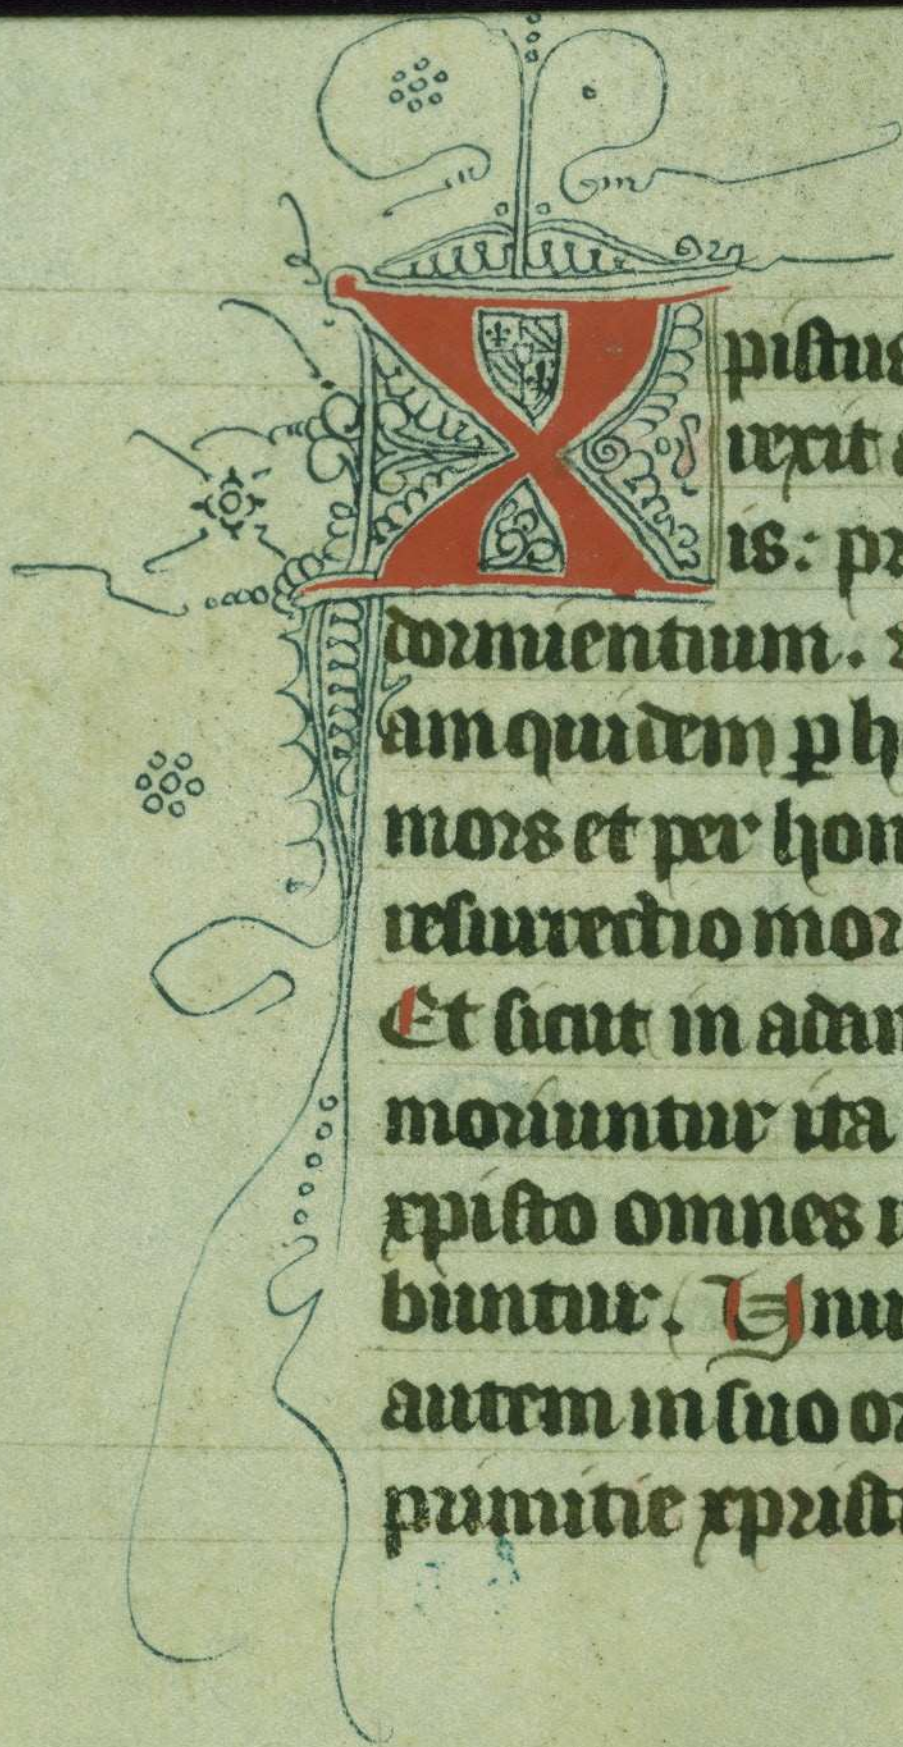 Xpistus
rexit a
is: pr
dormientium. 
am quidem p h
mors et per hom
resurrectio mor
Et sicut in adam
moriuntur ita
xpisto omnes
buntur. Unu
autem in suo or
primitie xprist